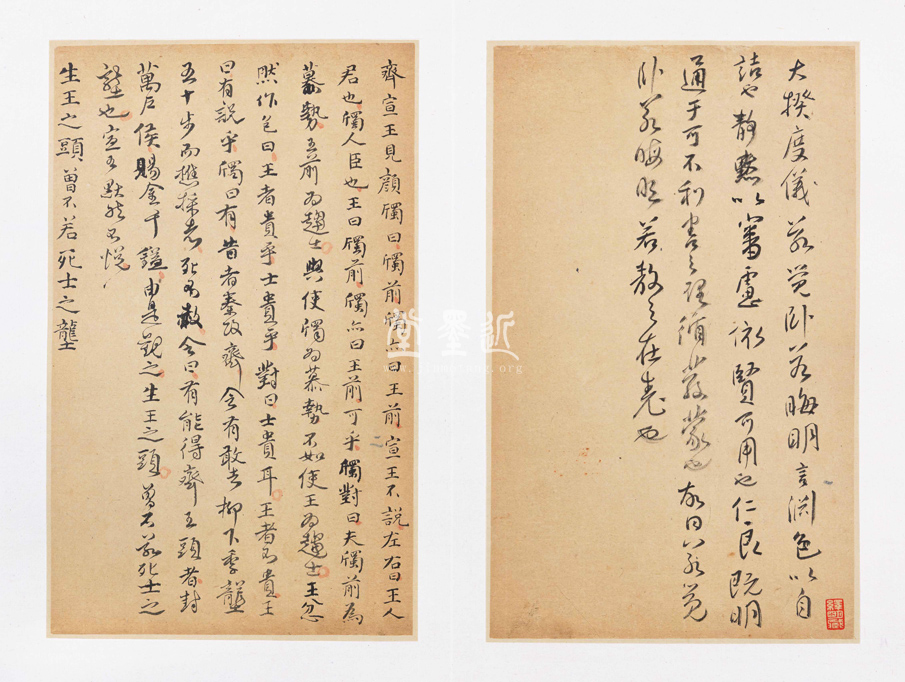 大揆度儀若覺卧若晦明言淵色以自
詰也靜默以審慮依賢可用也仁良既明
通于可不利害之理循發蒙也故曰若覺
卧若晦明若敖之在堯也
齊宣王見顏斶曰斶前斶亦曰王前宣王不說左右曰王人
君也斶人臣也王曰斶前斶亦曰王前可乎斶對曰夫斶前為
慕勢王前為趨士與使斶為慕勢不如使王為趨士王忿
然作色曰王者貴乎士貴乎對曰士貴耳王者不貴王
曰有說乎斶曰有昔者秦攻齊令有敢去柳下季壟
五十步而樵採者死不赦令曰有能得齊王頭者封
萬户侯賜金千鎰由是觀之生王之頭曾不若死士之
壟也宣王默然不悅
生王之頭曾不若死士之壟
近墨堂